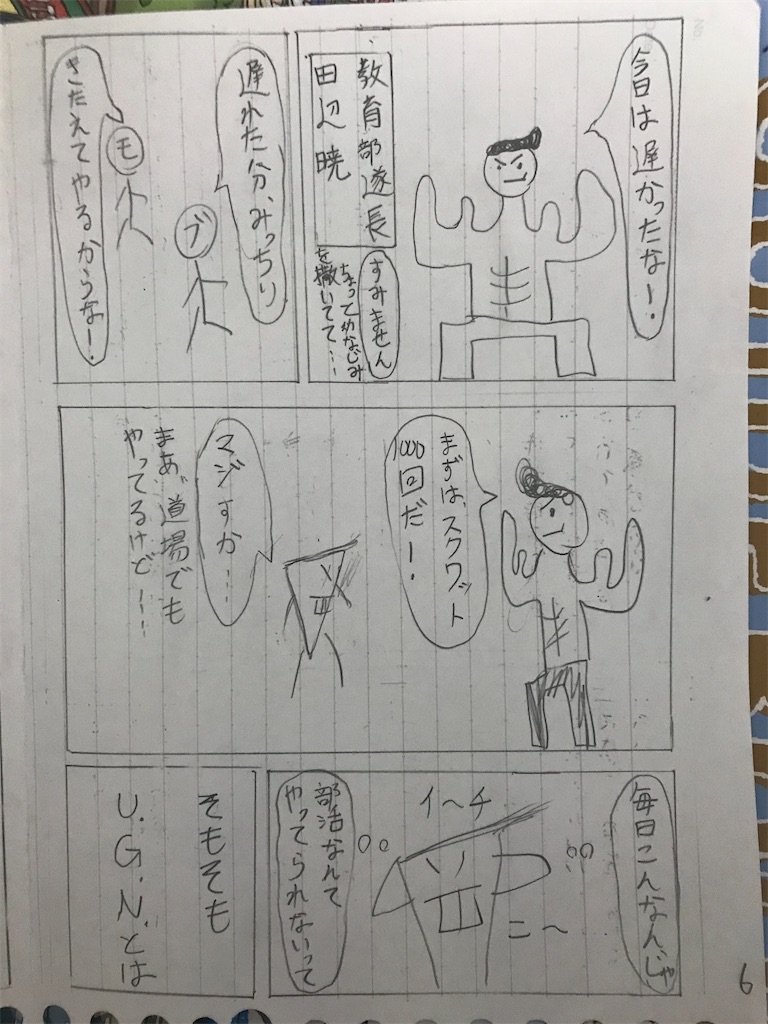 今日は遅かったな！
教育部隊長
田辺暁
すみません
ちょってめなじみ
を撒いてて…
遅れた分、みっちり
きたえてやるからな！
ブ
モ
まずは、スクワット
1000回だ！
マジすか…
まあ、道場でも
やってるけど…
毎日こんなんじゃ
イ～チ
ニ～
部活なんて
やってられないって
そもそも
U.G.Nとは
6